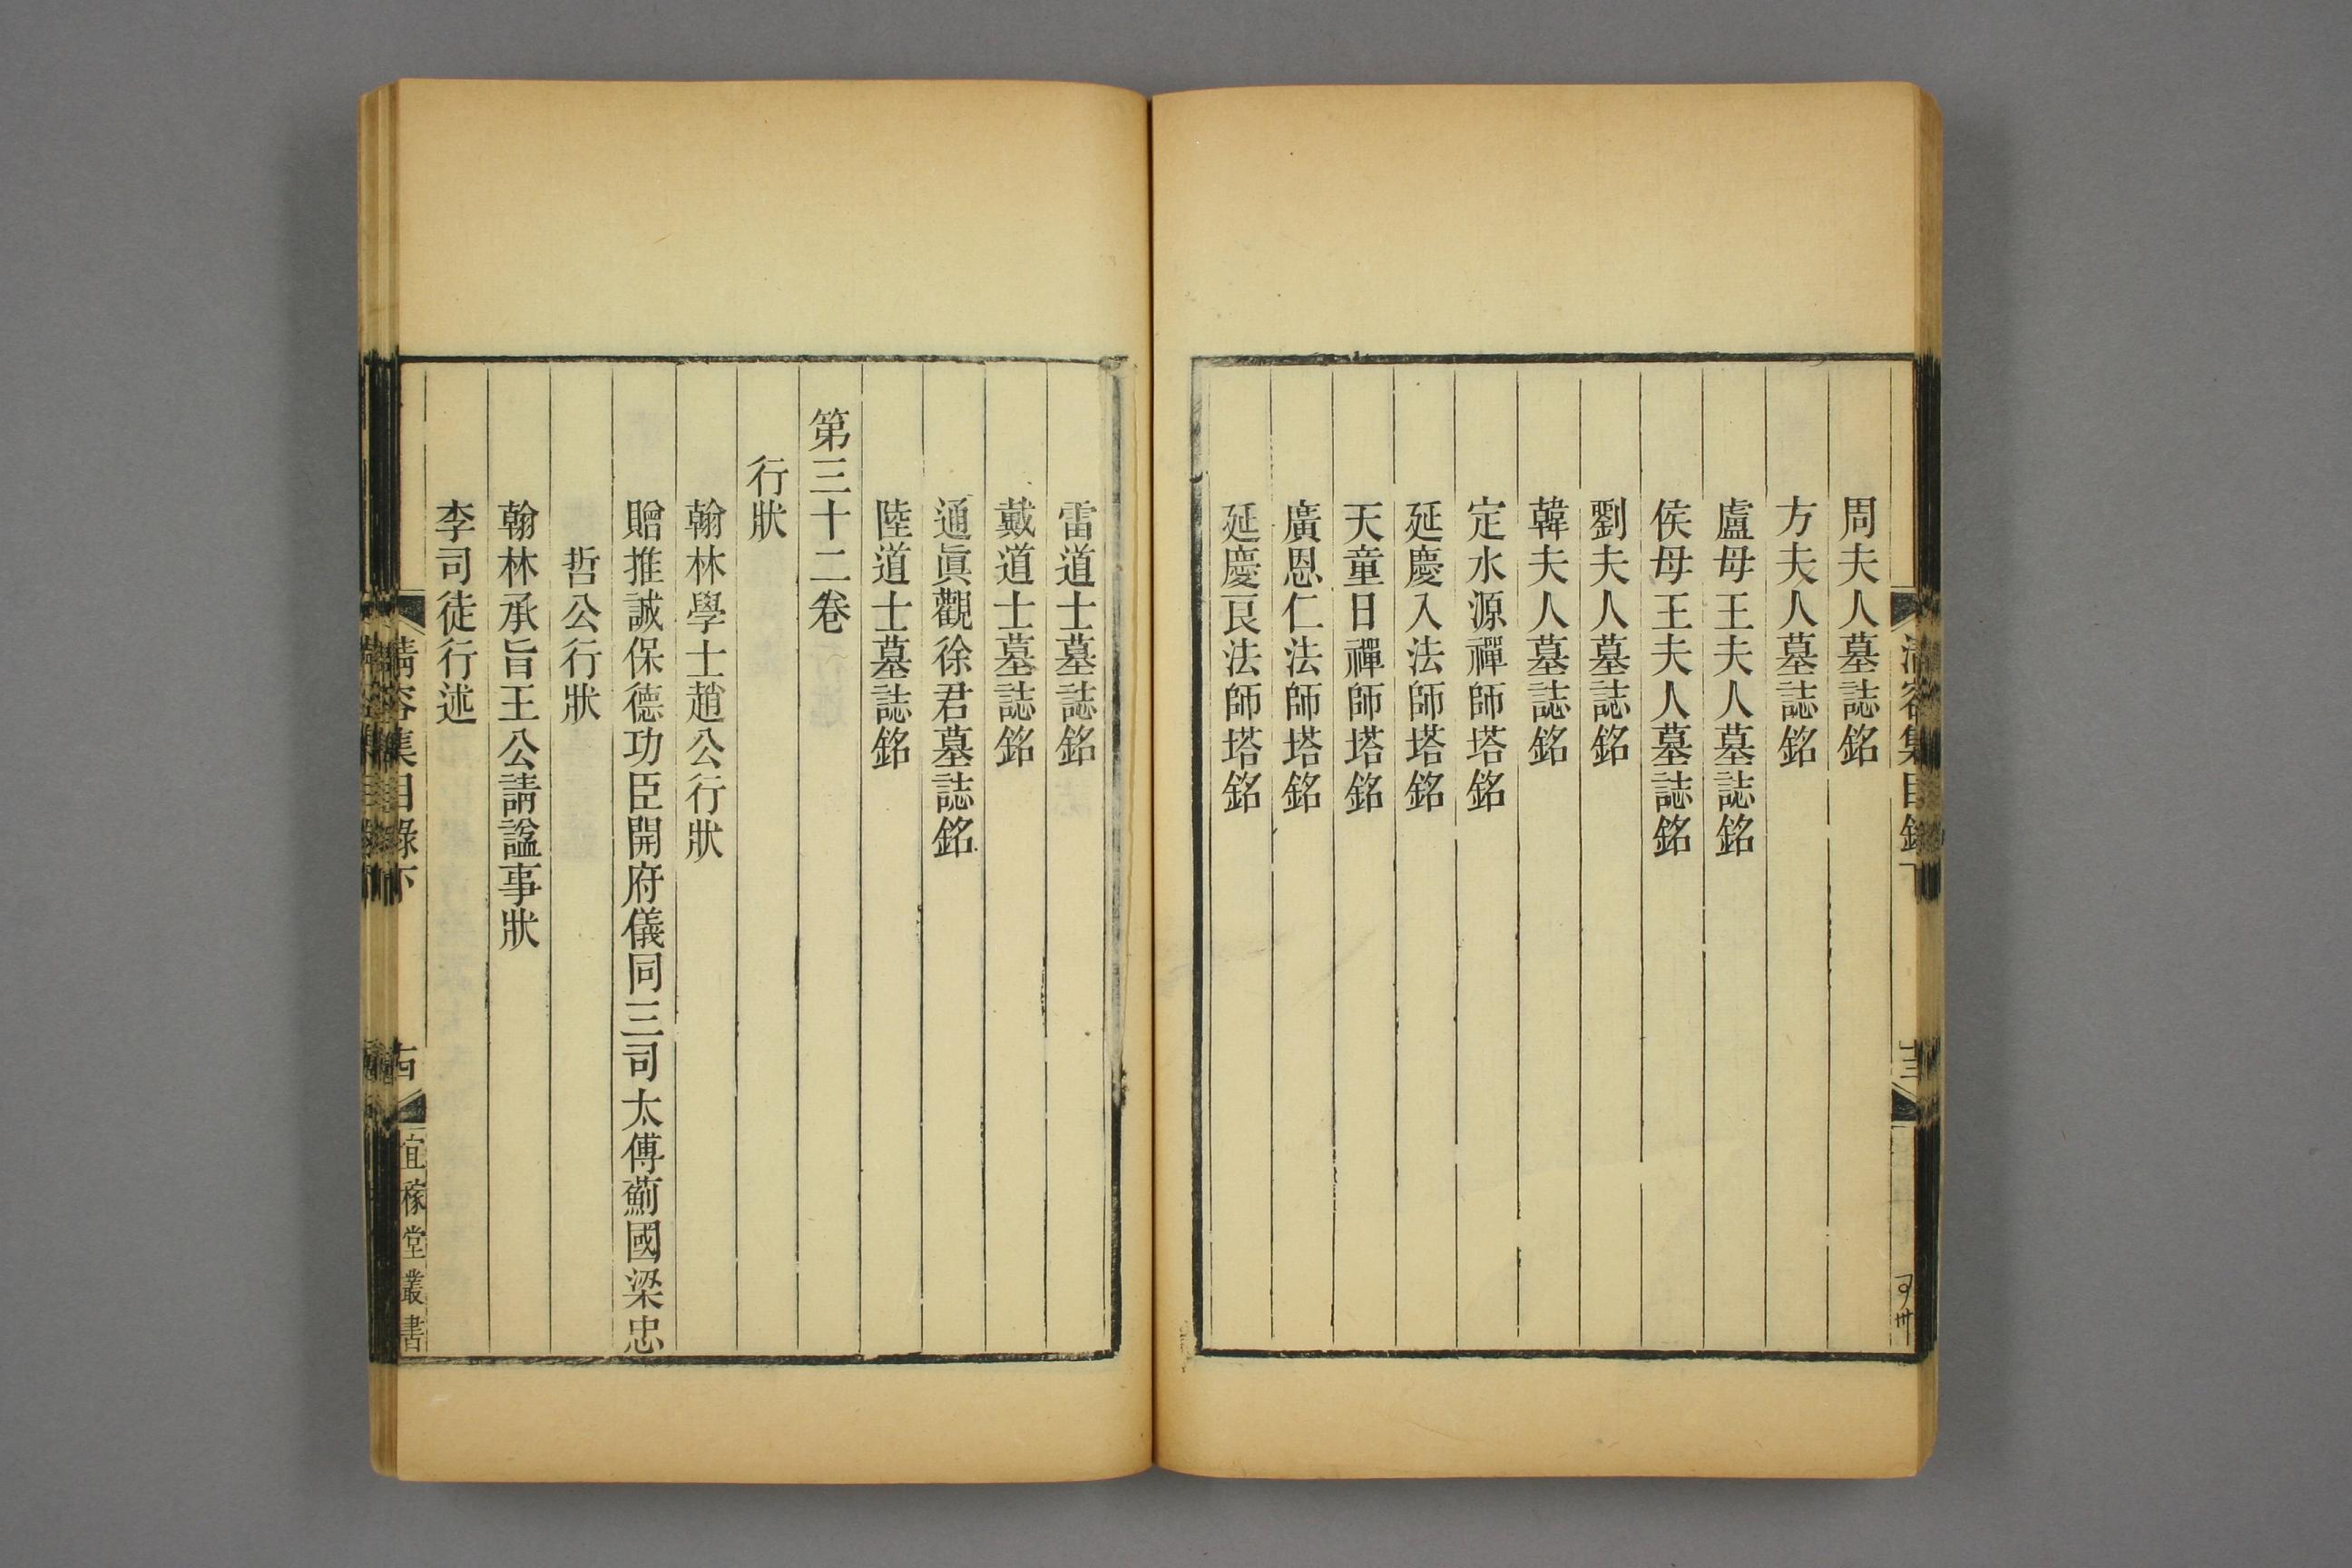 清容集目錄下
周夫人墓誌銘
方夫人墓誌銘
盧母王夫人墓誌銘
侯母王夫人墓誌銘
劉夫人墓誌銘
韓夫人墓誌銘
定水源禪師塔銘
延慶入法師塔銘
天童日禪師塔銘
廣恩仁法師塔銘
延慶良法師塔銘
雷道士墓誌銘
戴道士墓誌銘
通眞觀徐君墓誌銘
陸道士墓誌銘
第三十二卷
行狀
翰林學士趙公行狀
贈推誠保德功臣開府儀同三司太傅薊國梁忠
哲公行狀
翰林承旨王公請諡事狀
李司徒行述
清容集目錄下
宜稼堂叢書